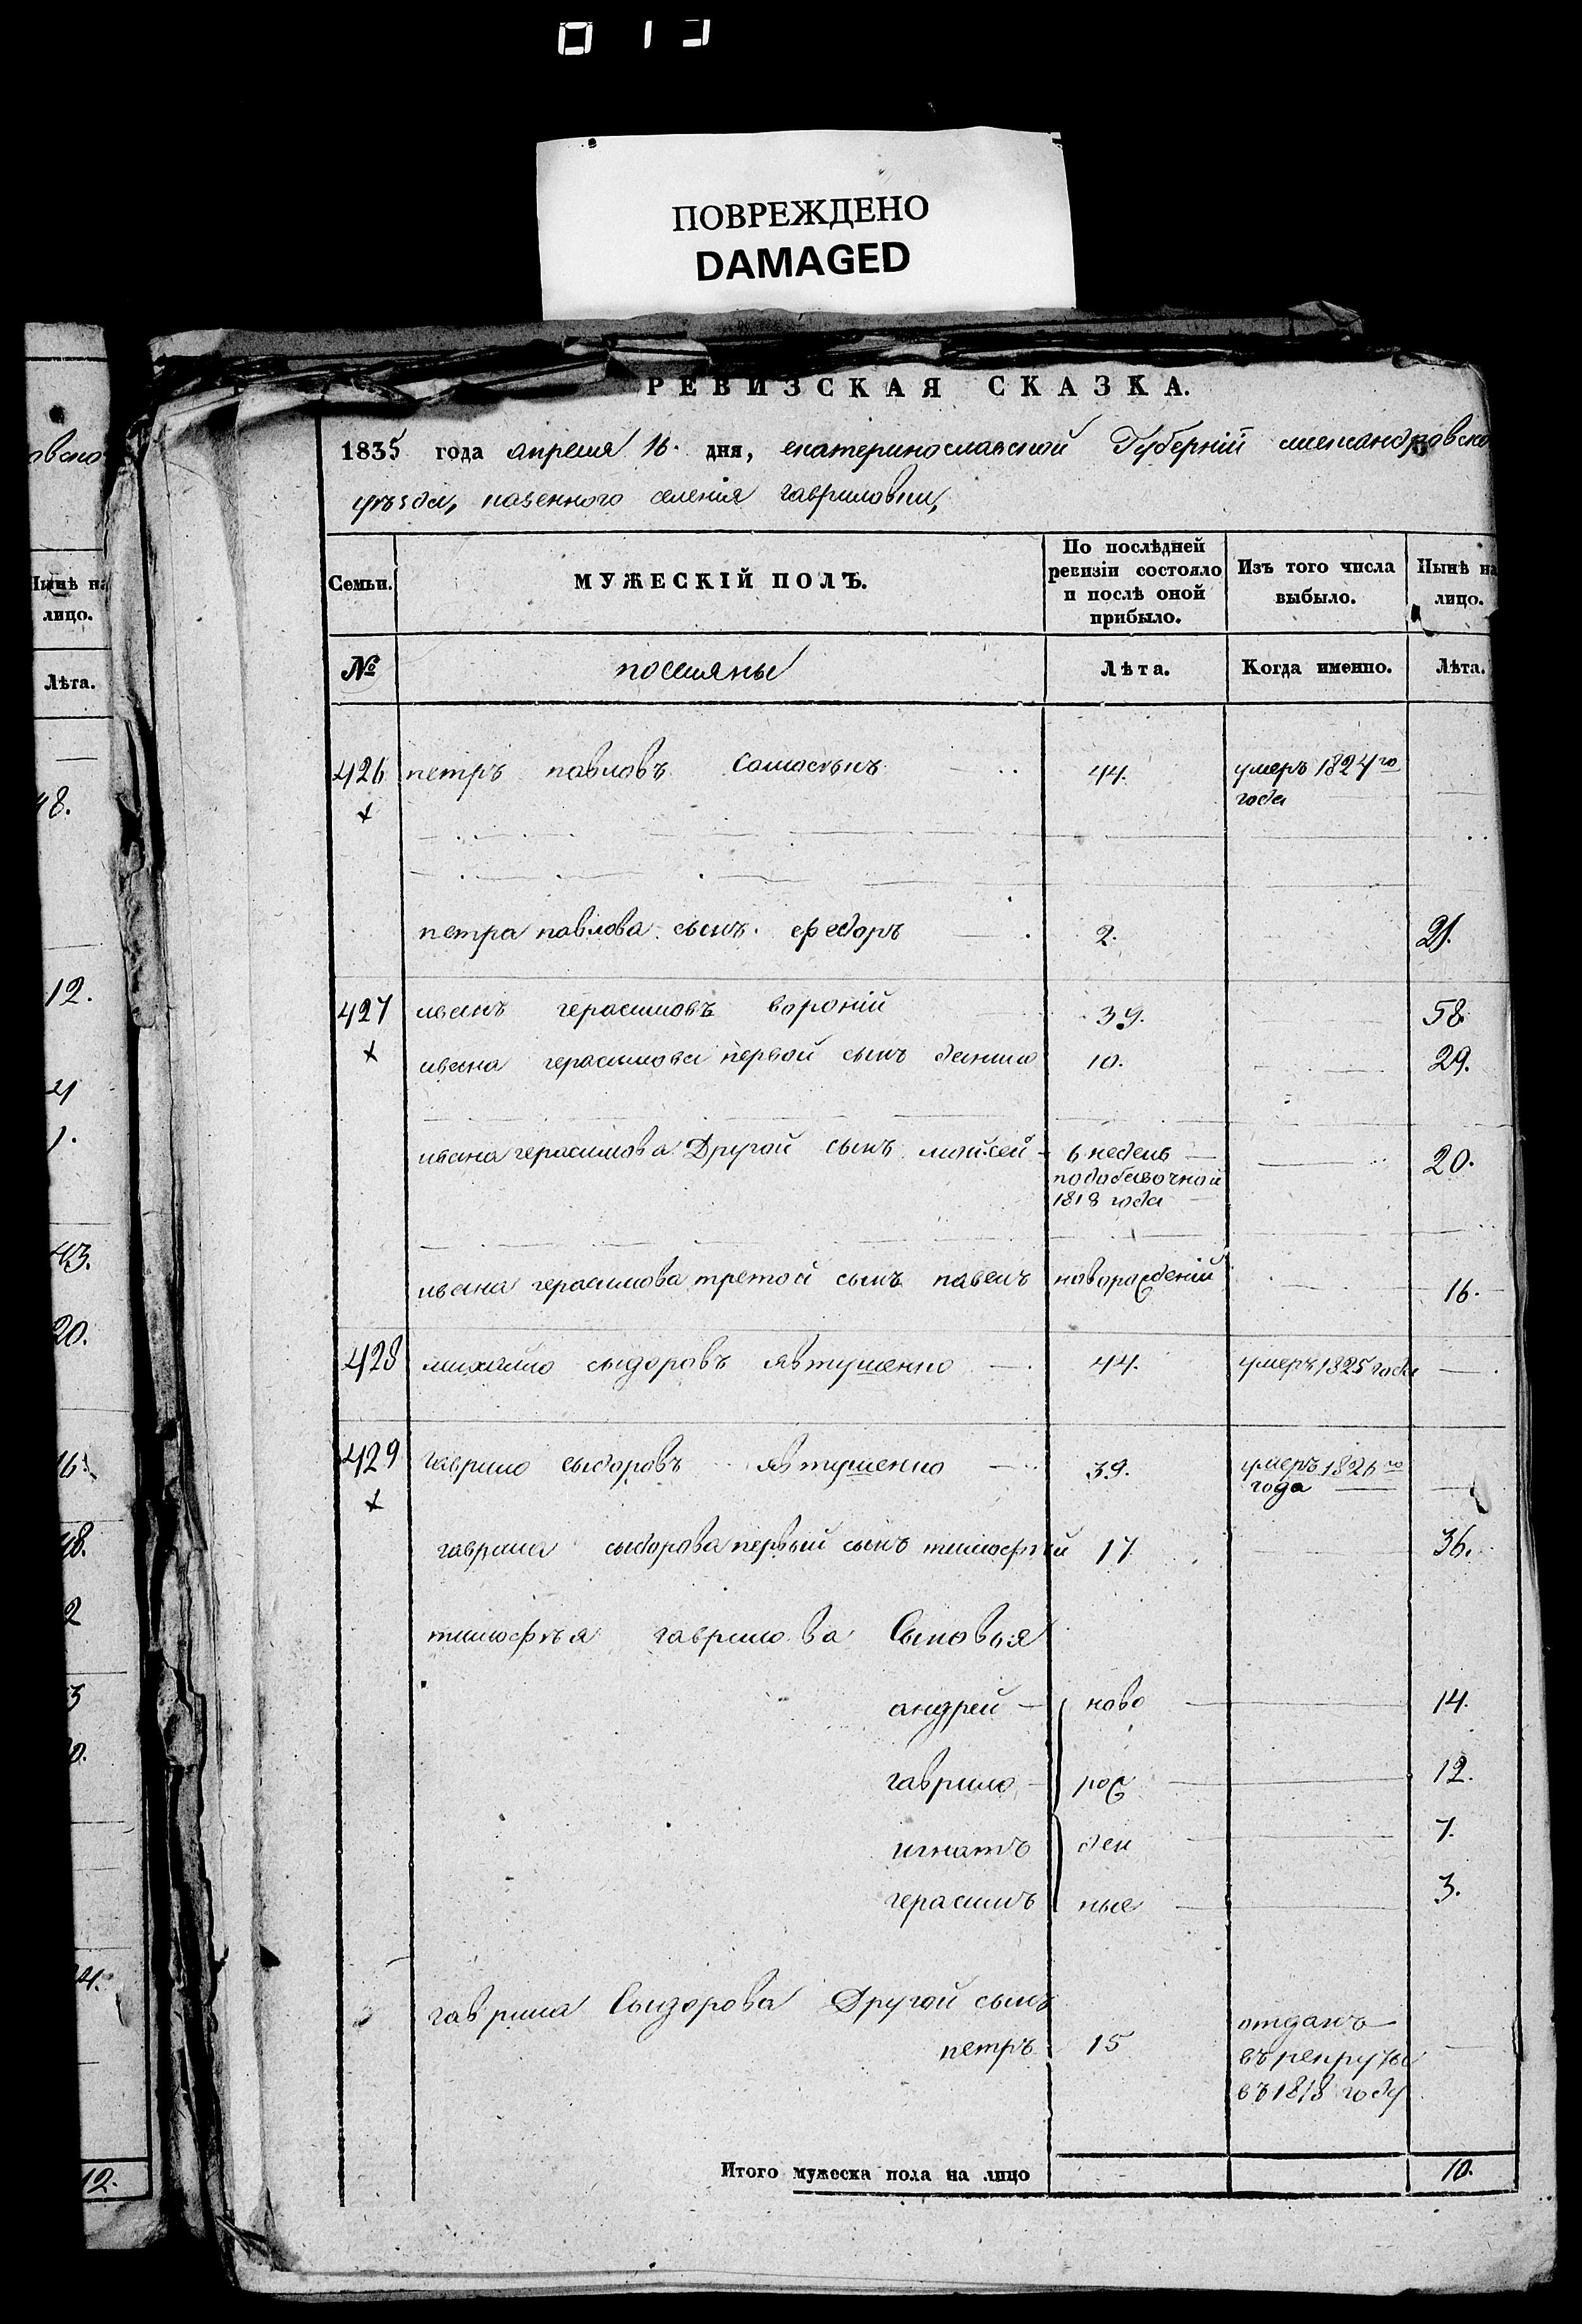 ПОВРЕЖДЕНО
DAMAGED
РЕВИЗСКАЯ СКАЗКА.
1835 года апреля 16. дня, екатеринославской Губерніи александровско
уѣзда, казенного селенія гавриловки,
Семьи.
МУЖЕСКІЙ ПОЛЪ.
По послѣдней ревизіи состояло и послѣ оной прибыло.
Изъ того числа выбыло.
Нынѣ на лицо.
№
поселяны
Лѣта.
Когда именно.
Лѣта.
426 петръ павловъ 44. умеръ 1824го
года
петра павлова сынъ федоръ 2. 21.
427 иванъ герасимовъ вороній 39. 58.
ивана герасимова первой сынъ данило 10. 29.
ивана герасимова Другой сынъ мойсей 6 недель 20.
подобавочной
1818 года
ивана герасимова третой сынъ павелъ новорожденій 16.
428 михайло сыдоровъ явтушенко 44. умеръ 1825 года
429 гаврило сыдоровъ явтушенко 39. умеръ 1826го
года
гаврила сыдорова первый сынъ тимофѣй 17 36.
тимофѣя гаврилова Сыновья
андрей ново 14.
гаврило рож 12.
игнатъ ден 7.
герасимъ ные 3.
гаврила Сыдорова Другой сынъ
петръ 15 отданъ
въ рекруты
въ 1818 году
Итого мужеска пола на лицо 10.
овско
Нынѣ на
лицо.
Лѣта.
48.
12.
43.
20.
12.